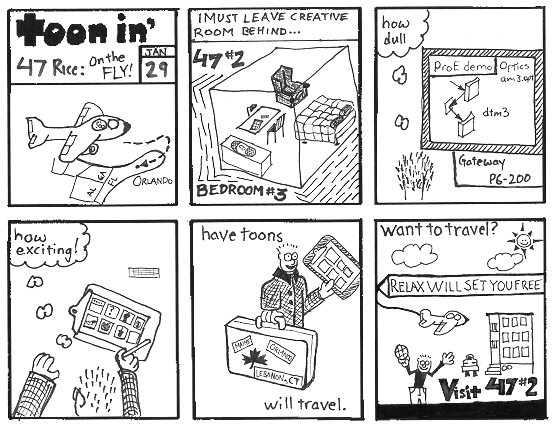 toon in'
47 Rice: On the FLY!
JAN
29
AL GA FL
ORLANDO
I MUST LEAVE CREATIVE
ROOM BEHIND...
47 #2
BEDROOM #3
how
dull
ProE demo
Optics
dtm3
Gateway
P6-200
how
exciting!
have toons
MAINE
ORLANDO
LEBANON, CT
will travel.
want to travel?
RELAX WILL SET YOU FREE
Visit 47 #2